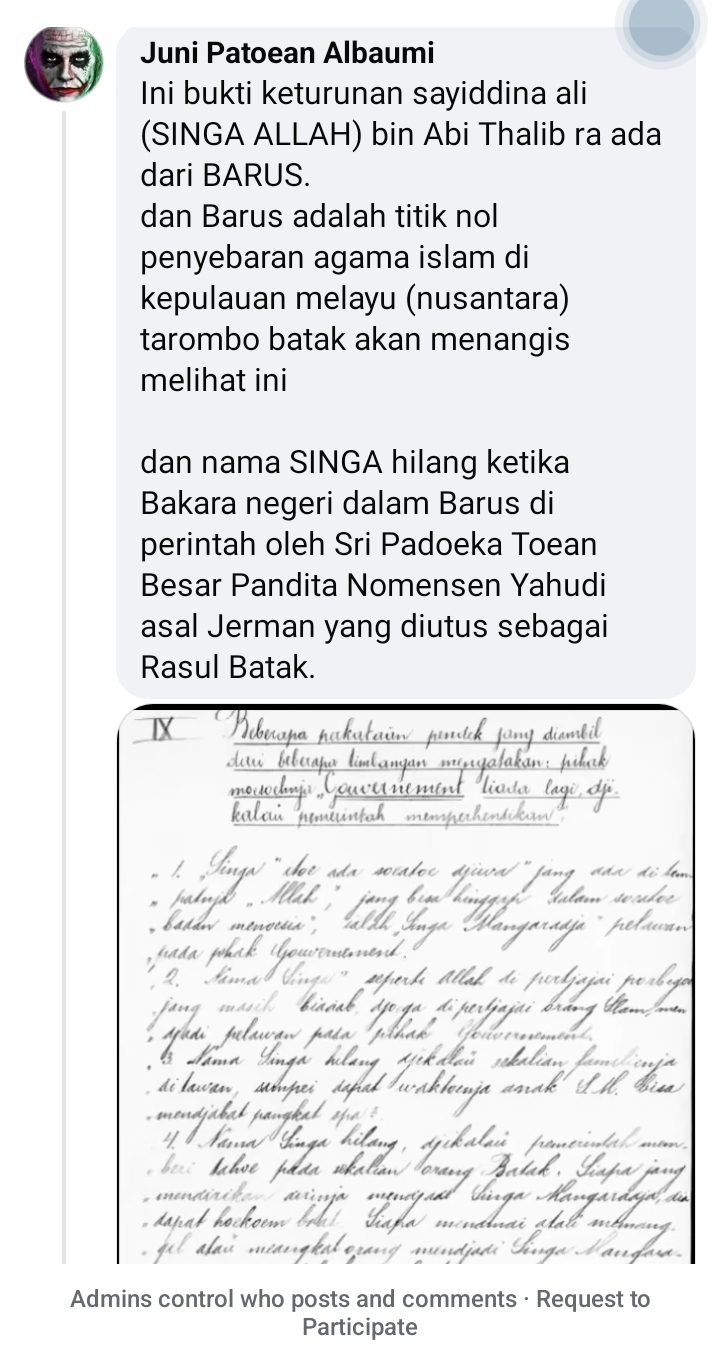 Juni Patoean Albaumi
Ini bukti keturunan sayiddina ali
(SINGA ALLAH) bin Abi Thalib ra ada
dari BARUS.
dan Barus adalah titik nol
penyebaran agama islam di
kepulauan melayu (nusantara)
tarombo batak akan menangis
melihat ini
dan nama SINGA hilang ketika
Bakara negeri dalam Barus di
perintah oleh Sri Padoeka Toean
Besar Pandita Nomensen Yahudi
asal Jerman yang diutus sebagai
Rasul Batak.
IX Beberapa perkataän pendek jang diambil
dari beberapa timbangan mengatakan: pihak
moesoehnja „Gouvernement tiada lagi, dji-
kalau pemerintah memperhentikan".
„ 1. „Singa" itoe ada soeatoe djiwa" jang ada di
„ „Allah", jang bisa hinggap dalam soeatoe
„ badan menoesia", ialah „Singa Mangaradja" pelawan
„ pada pihak Gouvernement.
„ 2. Nama „Singa" seperti Allah di pertjajai
„ jang masih biadab, djoega dipertjajai orang Islam, men
„ djadi pelawan pada pihak Gouvernement.
„ 3 Nama Singa hilang djikalau sekalian familienja
„ ditawan, sampei dapat waktoenja anak S.M. bisa
„ mendjabat pangkat apa?
„ 4. Nama Singa hilang, djikalau pemerintah mem-
„ beri tahoe pada sekalian orang Batak. Siapa jang
„ mendirikan dirinja mendjadi Singa Mangaradja, dia
„ dapat hoekoem Siapa menamai atau memang-
„ gil atau meangkat orang mendjadi Singa Mangara-
Admins control who posts and comments · Request to
Participate